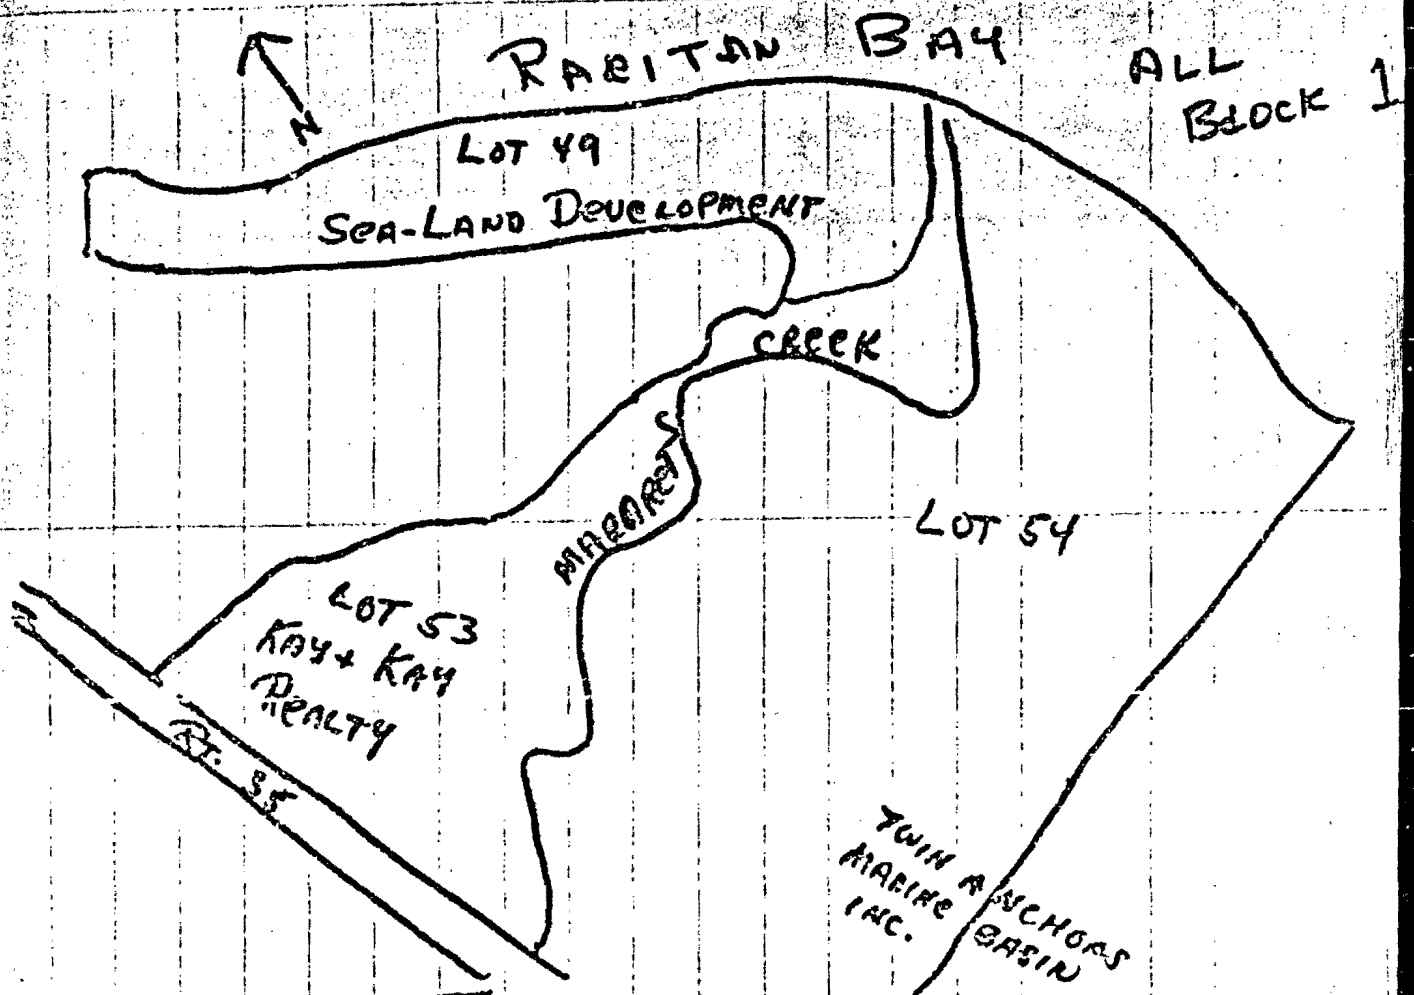 RARITAN BAY
ALL
BLOCK 1
N
LOT 49
SEA-LAND DEVELOPMENT
CREEK
MARGARET'S
LOT 54
LOT 53
KAY + KAY
REALTY
RT. 35
TWIN ANCHORS
MARINE BASIN
INC.